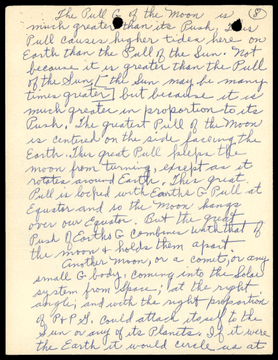 8
The Pull G of the Moon is
much greater than its Push. This
Pull causes higher tides here on
Earth than the Pull of the Sun. Not
because it is greater than the Pull
of the Sun, [the Sun may be many
times greater] but because it is
much greater in proportion to its
Push. The greatest Pull of the Moon
is centred on the side facing the
Earth. This great Pull keeps the
moon from turning, except as it
rotates around Earth. This great
Pull is locked with Earths G Pull at
Equator and so the Moon hangs
over our Equator. But the great
Push of Earths G combines with that of
the moon & holds them apart
Another Moon, or a comet, or any
small G body, coming into the Solar
system from Space, at the right
angle, and with the right proportion
of P & P G. Could attach itself to the
Sun or any of its Planets. If it were
the Earth it would circle us at